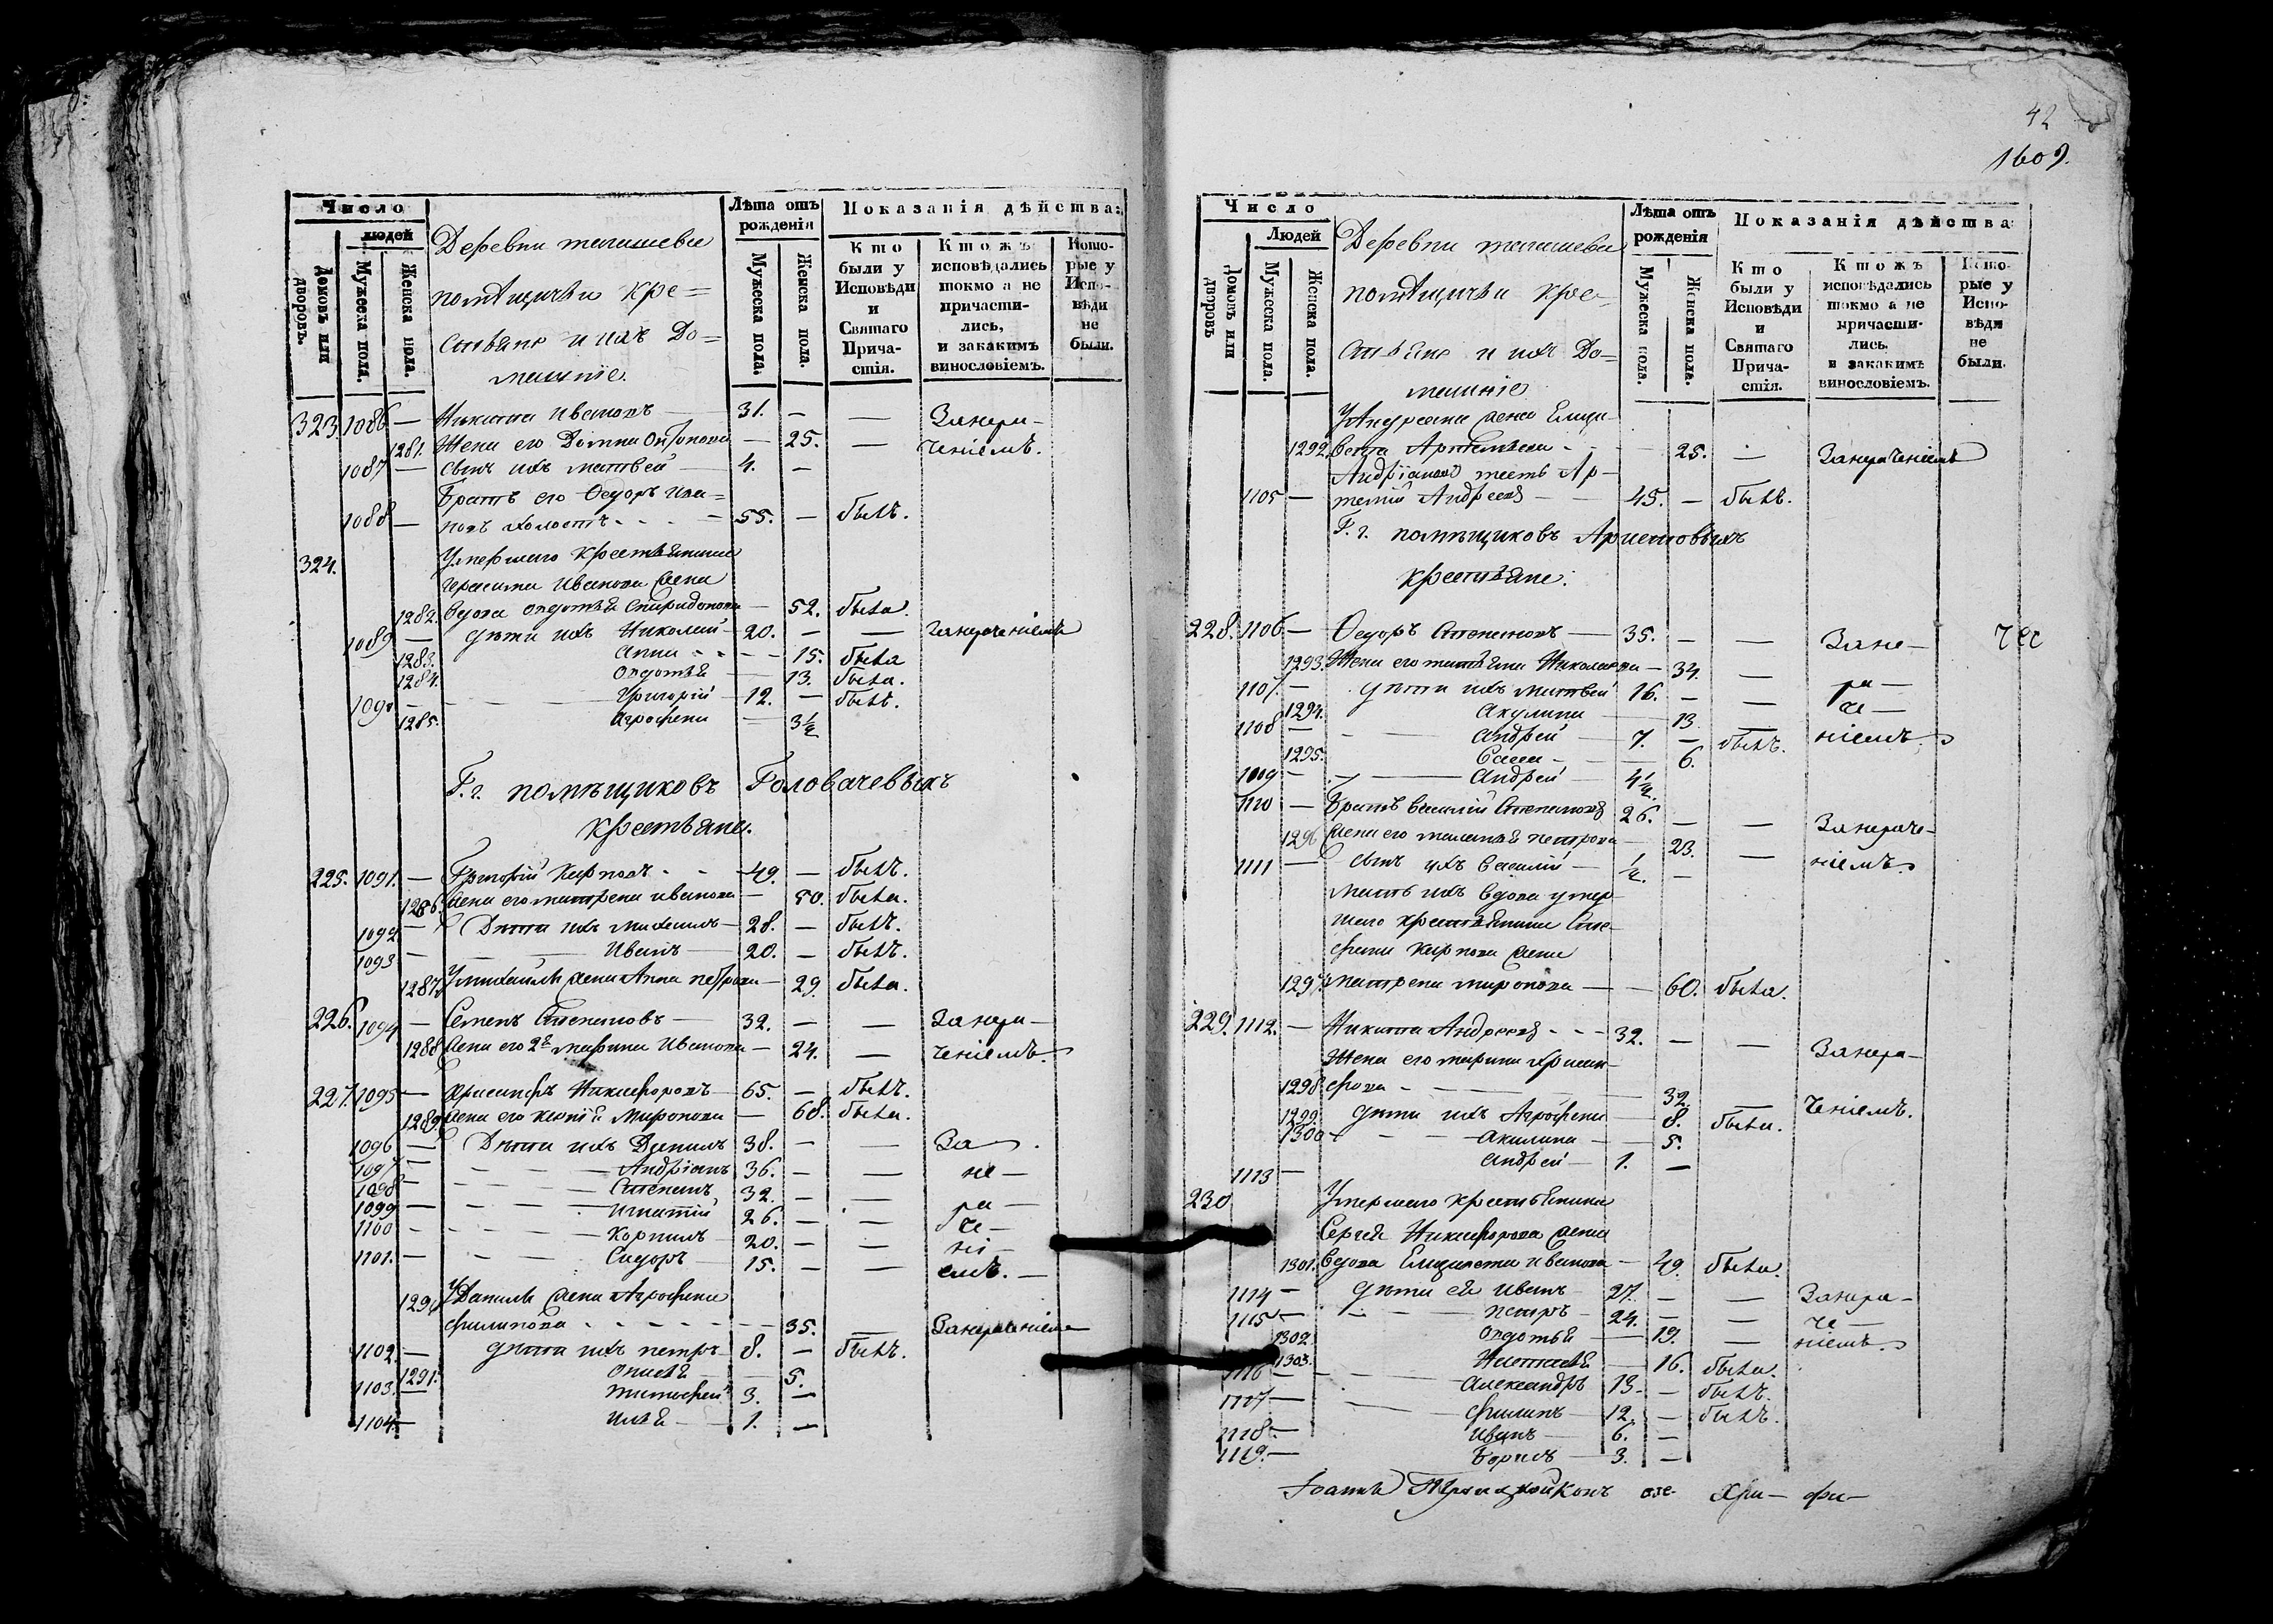 Число
людей
Домовъ или дворовъ.
Мужеска пола.
Женска пола.
Деревни
помѣщичьи кре=
стьяне и ихъ до=
машніе.
Лѣта отъ рожденія
Мужеска пола.
Женска пола.
Показанія дѣйства:
Кто были у Исповѣди и Святаго Причастія.
Кто жъ исповѣдались токмо а не причастились, и за какимъ винословіемъ.
Которые у Исповѣди не были.
323. 1086 — Никита Ивановъ — 31. — — Занера-
1281. Жена его Домна — 25. — ченіемъ.
1087 — сынъ ихъ Матвей — 4. —
Братъ его Ѳедоръ Ива=
1088 — новъ холостъ - - - 55. — былъ.
324. Умершаго крестьянина
Герасима Иванова жена
1282. вдова Овдотья Спиридонова — 52. была.
1089 — дѣти ихъ Николай — 20. — — Занераченіемъ
1283. Анна - - - - 15. была
1284. Овдотья — 13. была.
1090 — Григорій — 12. — былъ.
1285. Агрофена — 3½
Г. г. помѣщиковъ Головачевыхъ
крестьяне.
225. 1091. — Григорій Карповъ - - 49. — былъ.
1286. жена его Матрена Иванова — 50. была.
1092 — Дѣти ихъ Михаилъ — 28. — былъ.
1093 — Иванъ — 20. — былъ.
1287. У Михаилы жена Анна Петрова — 29. была.
226. 1094 — Семенъ Степановъ — 32. — — Занера-
1288 жена его 2я Марина Иванова — 24. — ченіемъ.
227. 1095 — Никифоровъ — 65. — былъ.
1289. жена его Миронова — 68. была.
1096 — Дѣти ихъ Данилъ 38. — — За
1097 — Андріанъ 36. — — не —
1098 — Степанъ 32. — — ра —
1099 — Игнатій 26. — — че —
1100 — Корнилъ — 20. — — ні —
1101. — Сидоръ 15. — — емъ. —
1290 У Данилы жена Агрофена
Филипова - - - - - 35. — Занераченіемъ
1102. — дѣти ихъ Петръ 8. — былъ.
1291. — 5.
1103. — Тимофей 3. —
1104 — Илья — 1. —
42
1609.
Число
Людей
Домовъ или дворовъ
Мужеска пола.
Женска пола.
Деревни
помѣщичьи кре-
стьяне и ихъ до=
машніе
Лѣта отъ рожденія
Мужеска пола.
Женска пола.
Показанія дѣйства
Кто были у Исповѣди и Святаго Причастія.
Кто жъ исповѣдались токмо а не причастились. и за какимъ винословіемъ.
Которые у Исповѣди не были.
У Андреана жена Елиза-
1292. вета Артемьева - — 25. — Занераченіемъ
Андріановъ тесть Ар-
1105 — темій Андреевъ — 45. — былъ.
Г. г. помѣщиковъ Аристовыхъ
крестьяне.
228. 1106 — Ѳедоръ Степановъ — 35. — — Зане —
1293. Жена его Татьяна Николаева — 34. — ра —
1107. — дѣти ихъ Матвей 16. — — че —
1294. Акулина — 13 — ніемъ
1108 — Андрей — 7. — былъ.
1295. — 6.
1109 — Андрей — 4½.
1110 — Братъ Василій Степановъ 26. — — Занераче-
1296 жена его Петрова — 23. — ніемъ
1111 — сынъ ихъ Василій — ½. —
мать ихъ вдова умер-
шаго крестьянина Сте-
фана Карпова жена
1297. Матрена Миронова — — 60. была.
229. 1112. — Никита Андреевъ - - - 32. — — Занера-
Жена его Марина
1298 — 32. — ченіемъ.
1299. дѣти ихъ Агрофена — 8. была.
1300 Акилина — 5.
1113 — Андрей — 1. —
230 Умершаго крестьянина
Сергѣя Никифорова жена
1301. вдова Елизавета Иванова — 49. была.
1114 — дѣти ея Иванъ 27. — — Занера-
1115 — Петръ — 24. — — че —
1302. Овдотья — 19. — ніемъ.
1303. Настасья — 16. была.
1116 — Александръ 13. — былъ.
1117 — Филипъ — 12. — былъ.
1118. — Иванъ — 6. —
1119. — Борисъ — 3. —